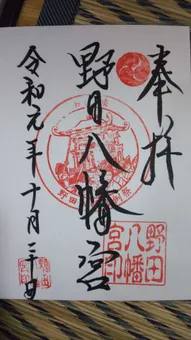 奉拝
野田八幡宮
令和元年十月二十日
野田
八幡
宮印